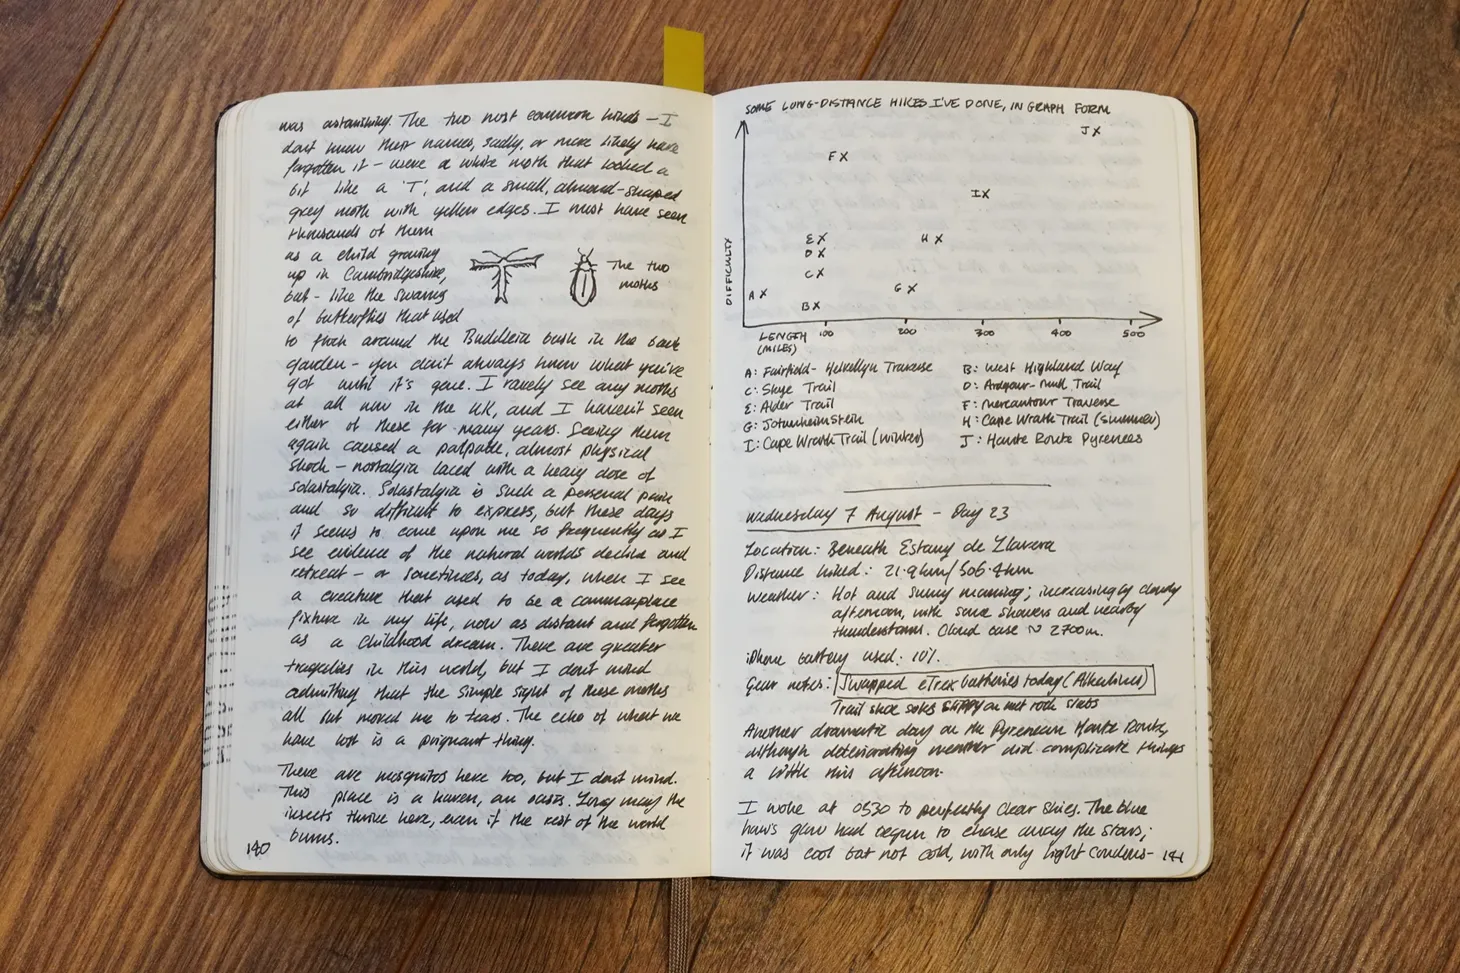 was astonishing. The two most common kinds – I
don't know their names, sadly, or more likely have
forgotten it – were a white moth that looked a
bit like a 'T', and a small, almond-shaped
grey moth with yellow edges. I must have seen
thousands of them
as a child growing
up in Cambridgeshire,
but – like the swarms
of butterflies that used
The two
moths
to flock around the Buddleia bush in the back
garden – you don't always know what you've
got until it's gone. I rarely see any moths
at all now in the UK, and I haven't seen
either of these for many years. Seeing them
again caused a palpable, almost physical
shock – nostalgia laced with a heavy dose of
solastalgia. Solastalgia is such a personal pain
and so difficult to express, but these days
it seems to come upon me so frequently as I
see evidence of the natural world's decline and
retreat – or sometimes, as today, when I see
a creature that used to be a commonplace
fixture in my life, now as distant and forgotten
as a childhood dream. There are greater
tragedies in this world, but I don't mind
admitting that the simple sight of these moths
all but moved me to tears. The echo of what we
have lost is a poignant thing.
There are mosquitos here too, but I don't mind.
This place is a haven, an oasis. Long may the
insects thrive here, even if the rest of the world
burns.
140
SOME LONG-DISTANCE HIKES I'VE DONE, IN GRAPH FORM
DIFFICULTY
J X
F X
I X
E X
H X
D X
C X
G X
A X
B X
LENGTH
(MILES)
100 200 300 400 500
A: Fairfield-Helvellyn Traverse B: West Highland Way
C: Skye Trail D: Ardgour-Mull Trail
E: Alder Trail F: Mercantour Traverse
G: Jotunheimstein H: Cape Wrath Trail (summer)
I: Cape Wrath Trail (winter) J: Haute Route Pyrenees
Wednesday 7 August – Day 23
Location: Beneath Estany de Llavera
Distance hiked: 21.9km/506.4km
Weather: Hot and sunny morning; increasingly cloudy
afternoon, with some showers and nearby
thunderstorms. Cloud base ~ 2700m.
iPhone battery used: 10%.
Gear notes: Swapped eTrex batteries today (Alkalines)
Trail shoe soles slippy on wet rock slabs
Another dramatic day on the Pyrenean Haute Route,
although deteriorating weather did complicate things
a little this afternoon.
I woke at 0530 to perfectly clear skies. The blue
hour's glow had begun to chase away the stars;
it was cool but not cold, with only light condens-
141